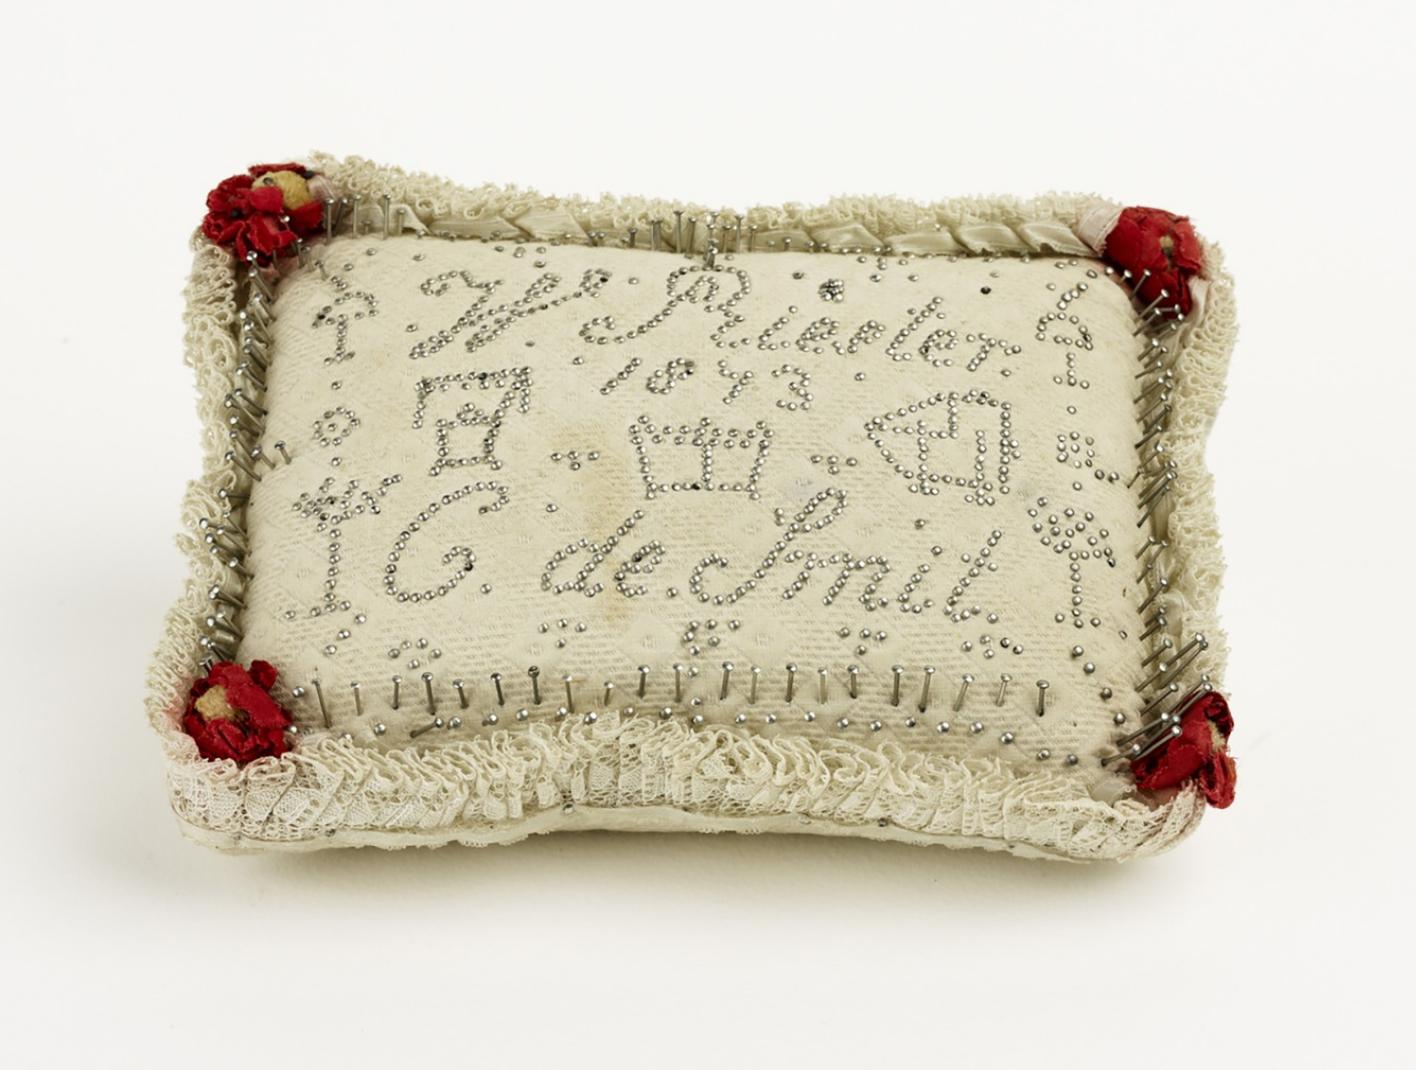 W Rienter
1873
C de Smit